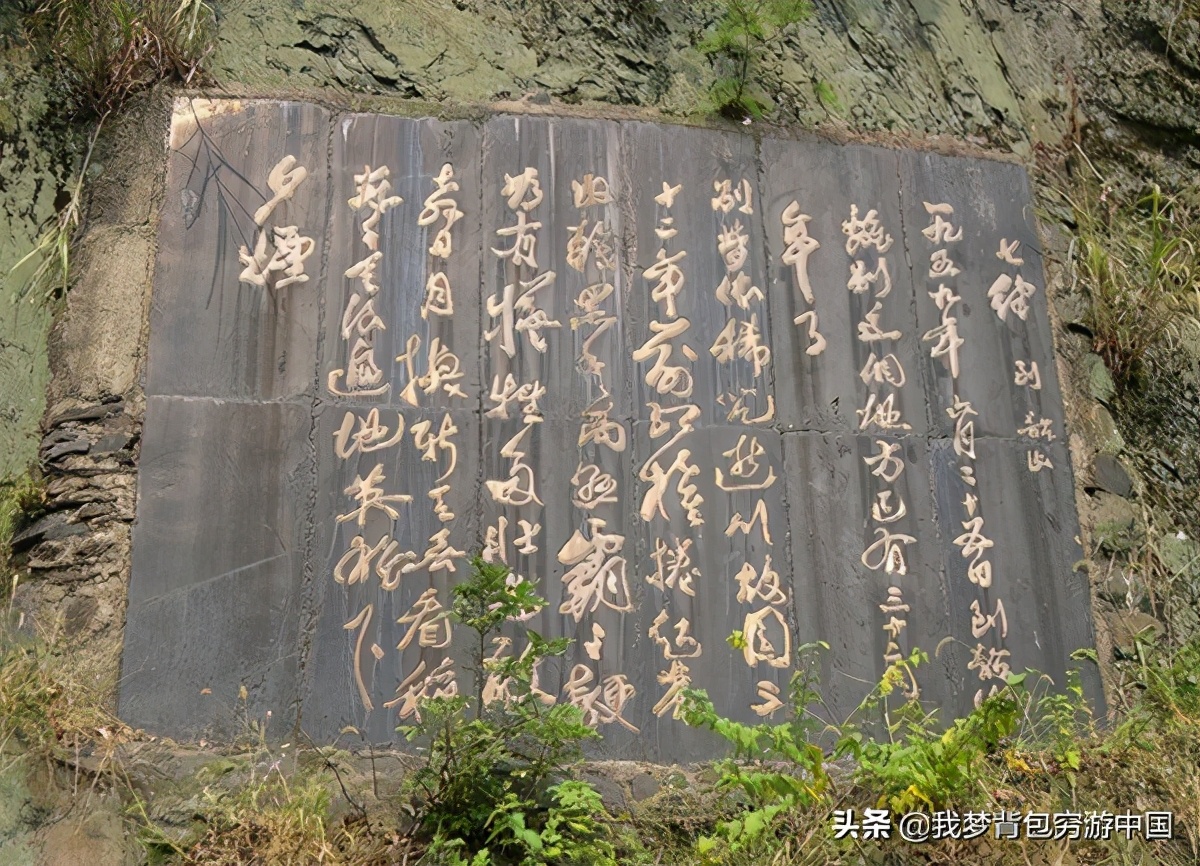 七律 到韶山
一九五九年六月二十五日到韶山
離别這個地方已有三十二
年了
别夢依稀咒逝川故園三
十二年前紅旗捲起農
奴戟黑手高懸霸主鞭
為有犧牲多壯志敢
教日月換新天喜看稻
菽千重浪遍地英雄下
夕煙
头条 @我梦背包穷游中国